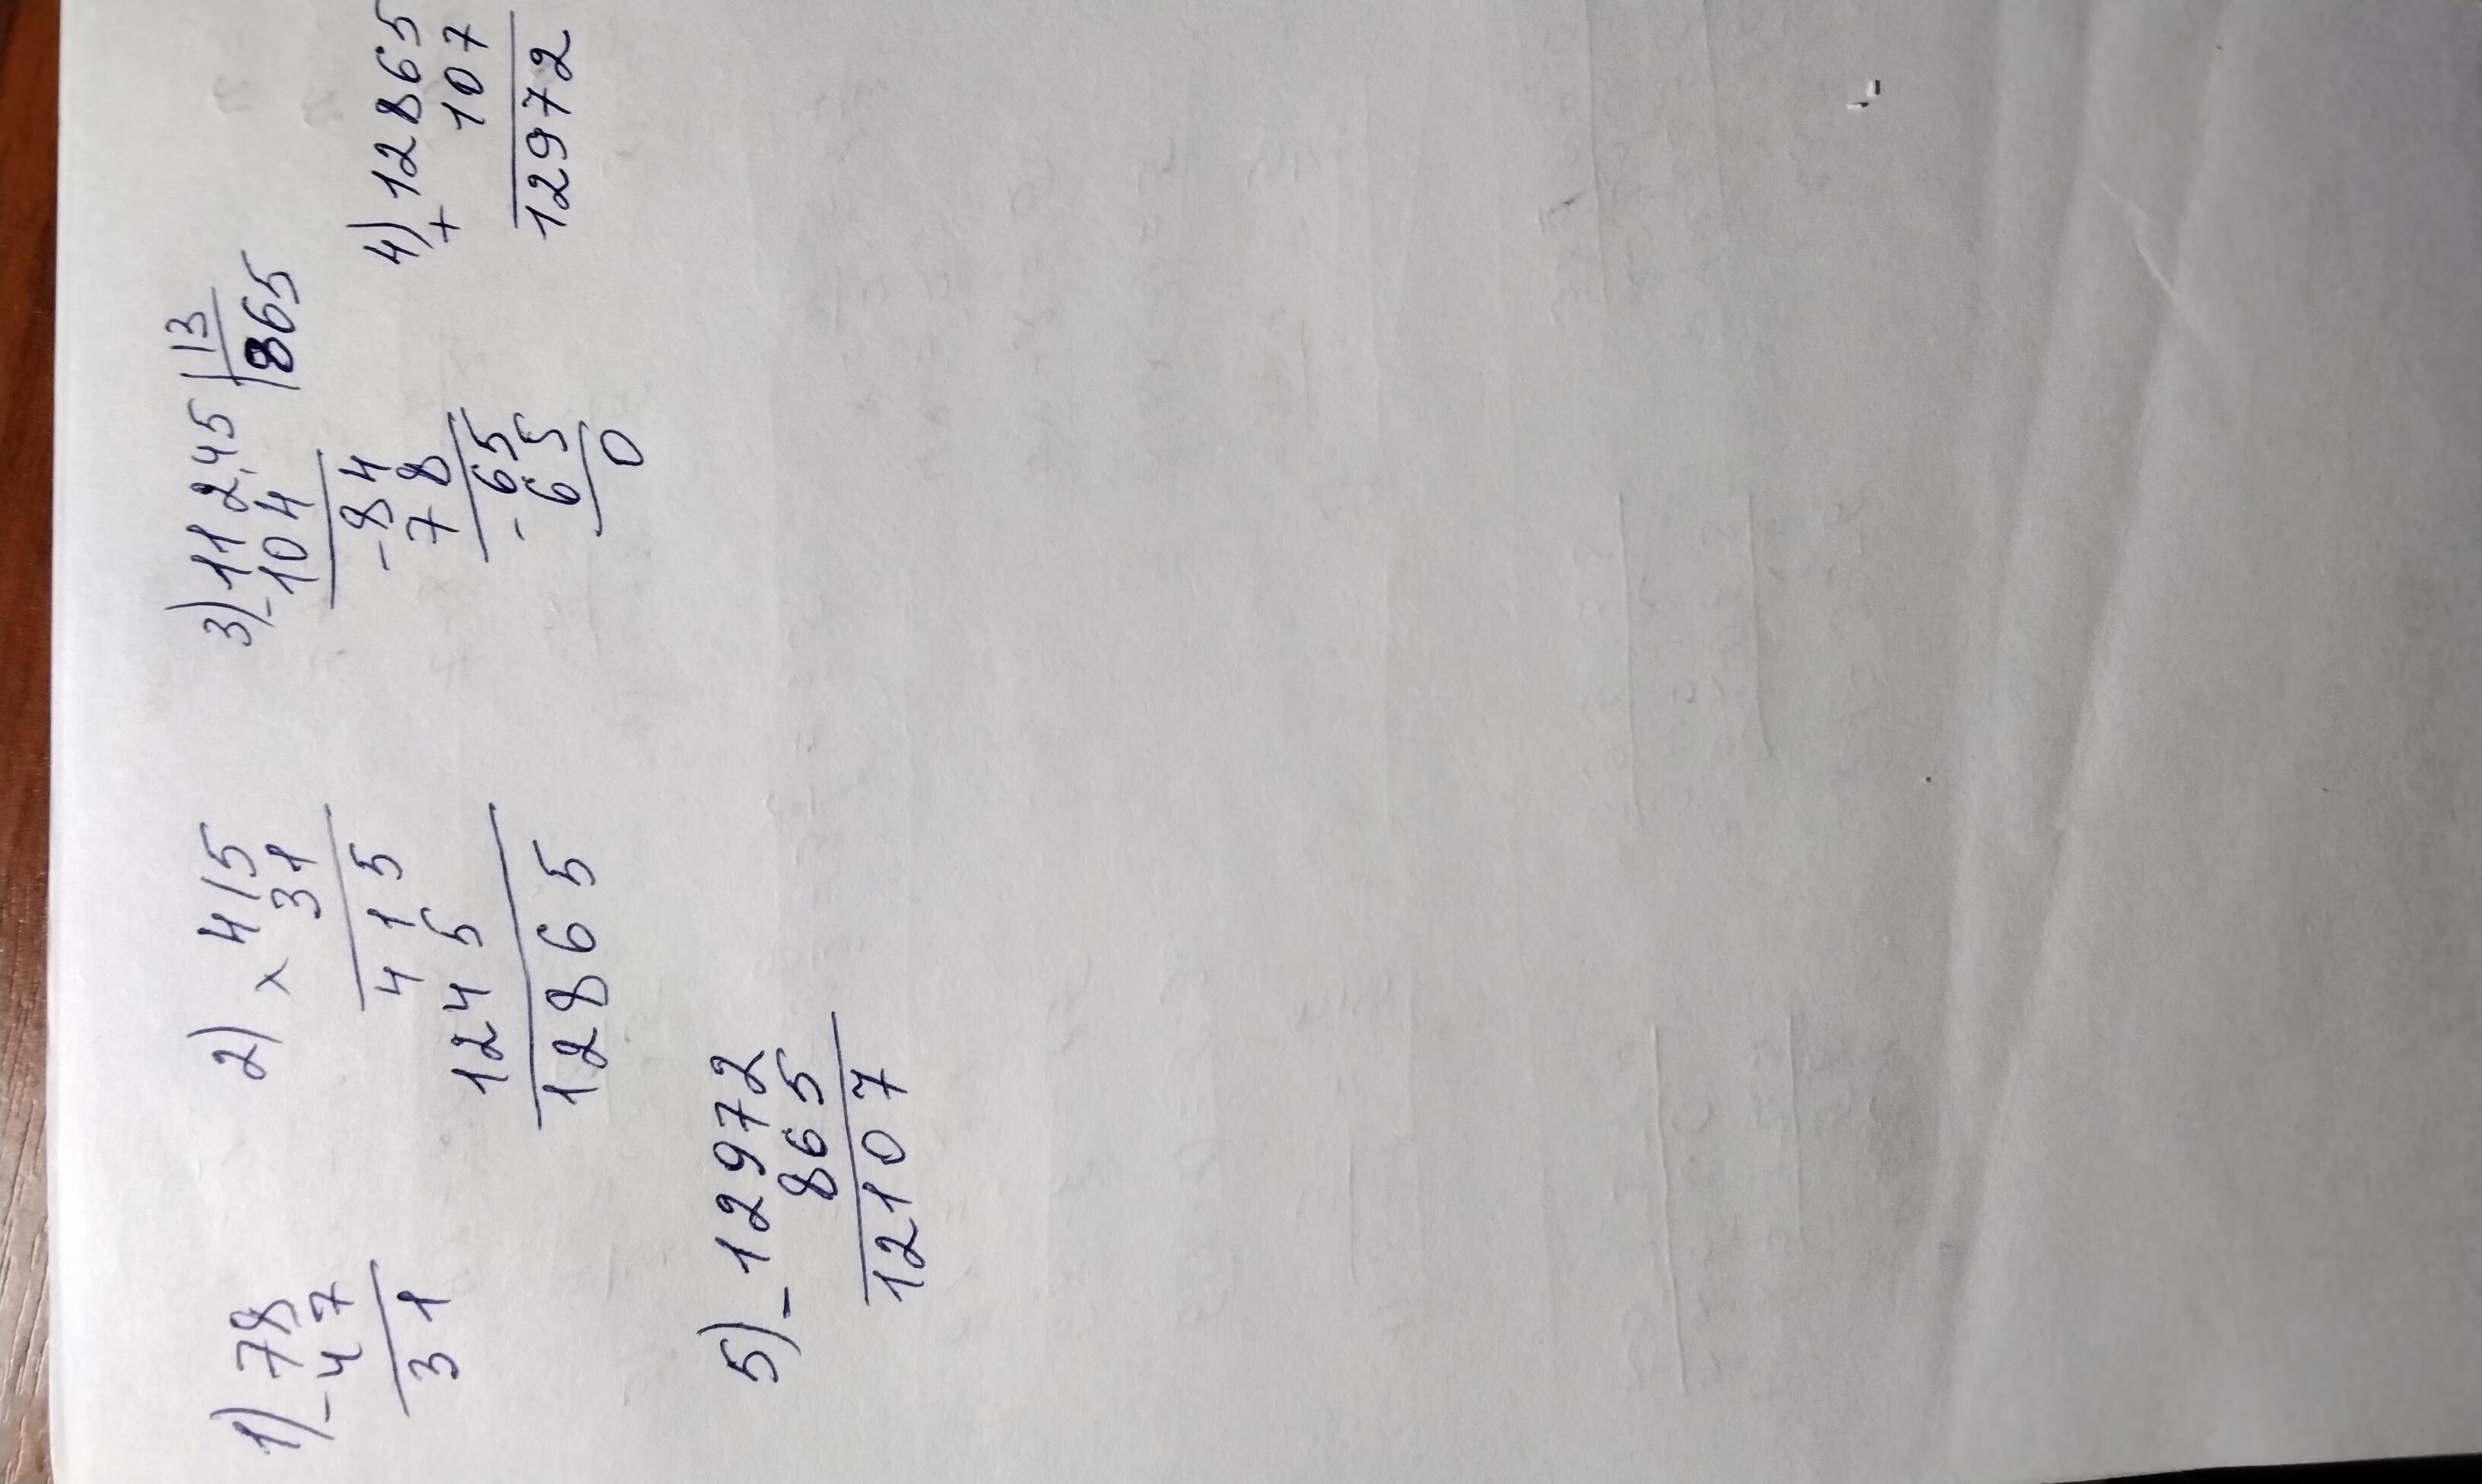 1) 78
- 47
31
2) × 415
31
415
1245
12865
3) 11245 | 13
- 104 | 865
- 84
78
- 65
65
0
4) 12865
+ 107
12972
5) - 12972
865
12107